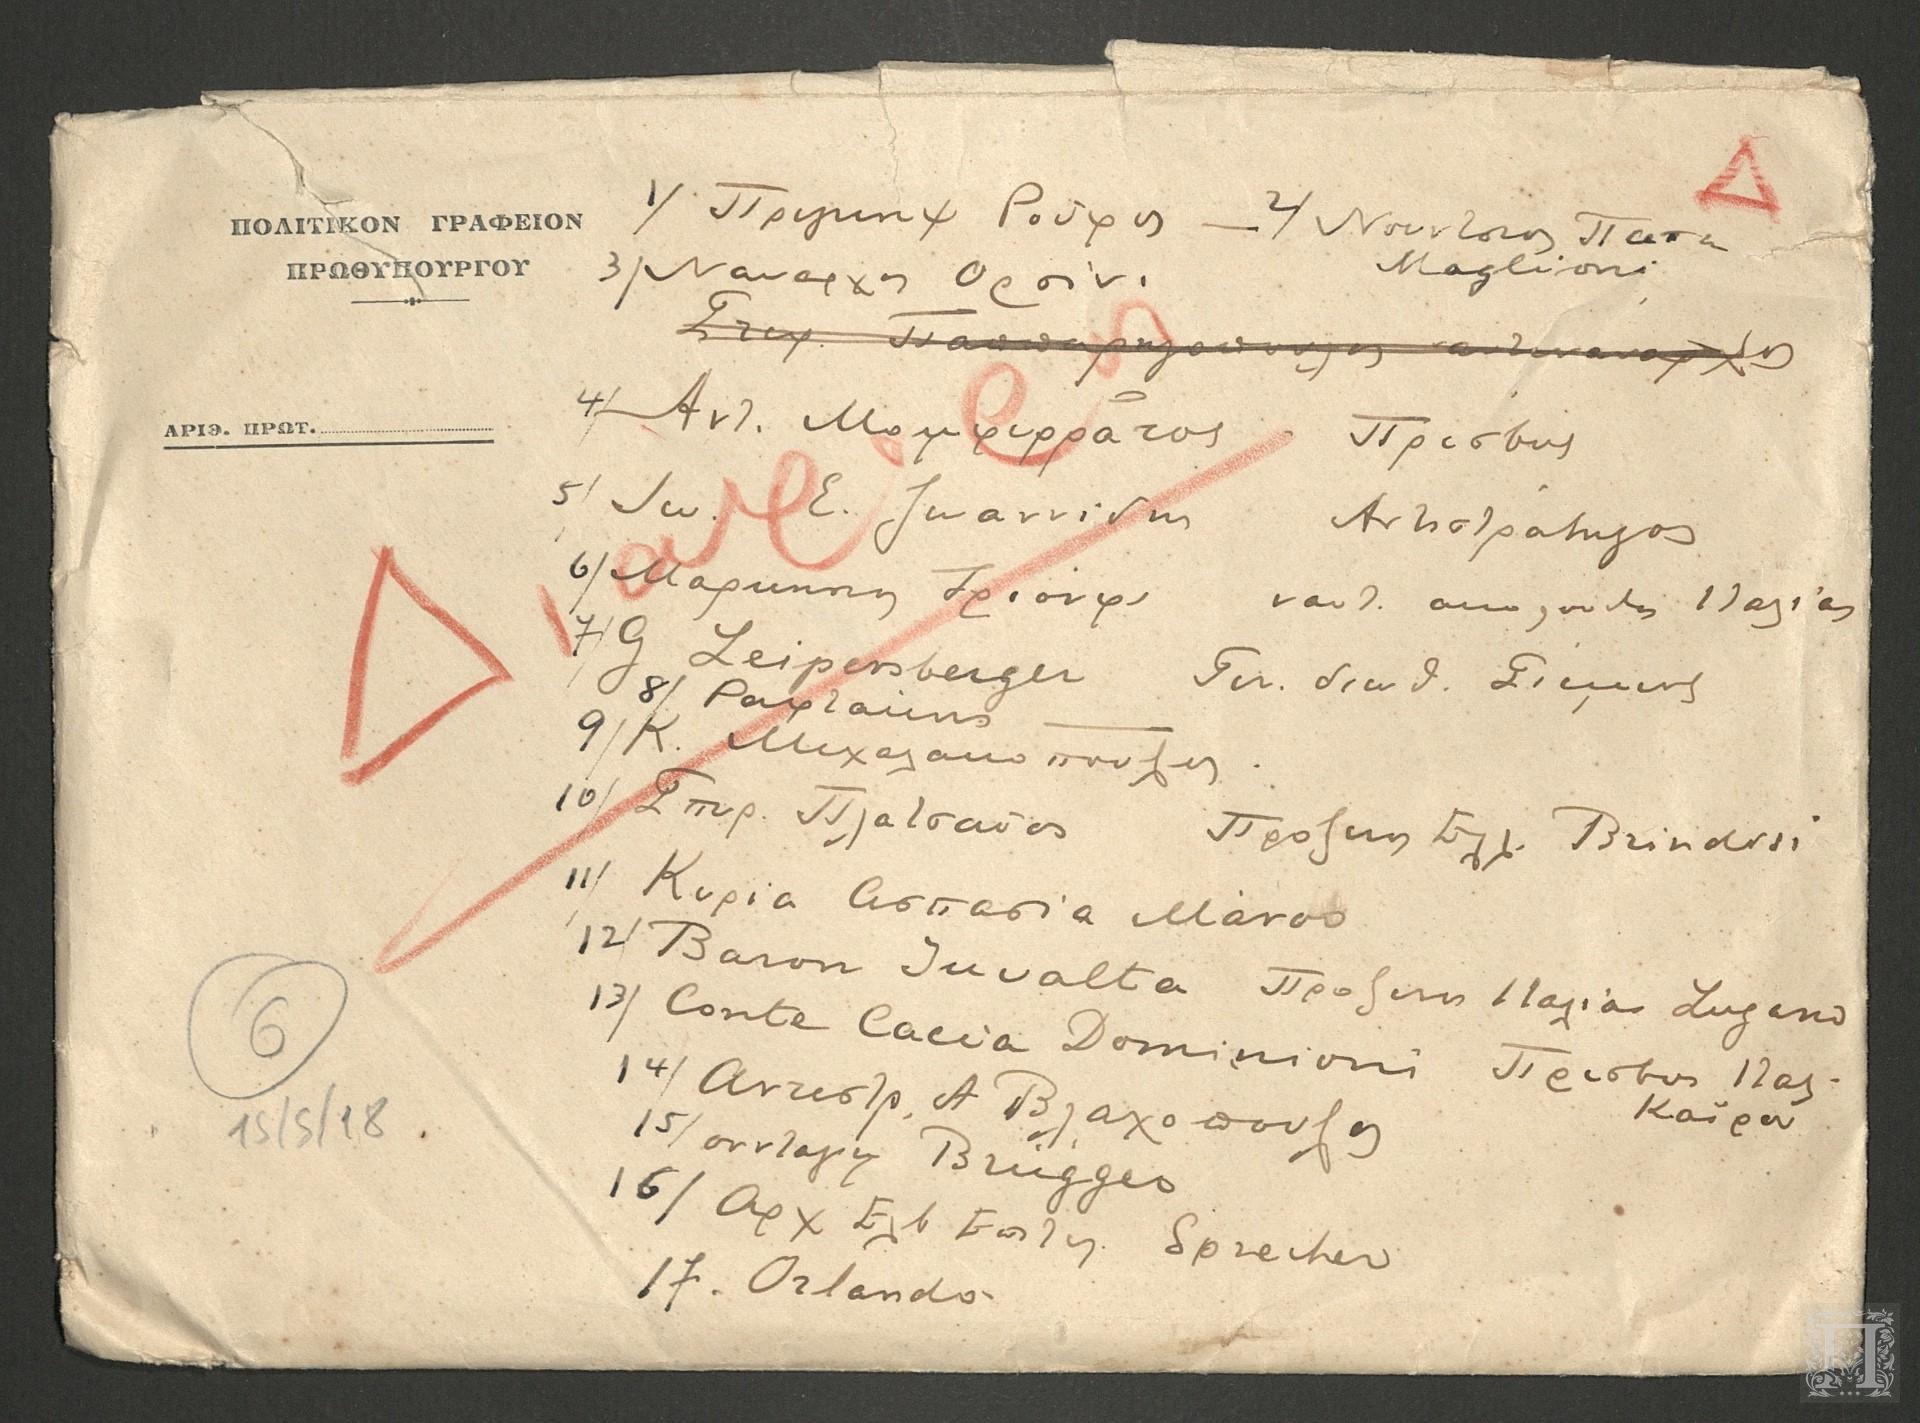 ΠΟΛΙΤΙΚΟΝ ΓΡΑΦΕΙΟΝ
ΠΡΩΘΥΠΟΥΡΓΟΥ
ΑΡΙΘ. ΠΡΩΤ.
Δ
1/ Πριγκηψ Ρούφος — 2/ Νουντσιος Παπα
Maglioni
3/ Ναυαρχος Ορσίνι
Στεφ. Παππαρηγοπουλος αντιναυαρχος
4/ Αντ. Μομφερράτος Πρεσβυς
5/ Ιω. Ε. Ιωαννίδης Αντιστράτηγος
6/ Μαρκησιος Τριόνφι ναυτ. ακολουθος Ιταλίας
7/ G Leipersberger Γεν. διευθ. Σίεμενς
8/ Ραφτάκης
9/ Κ. Μιχαλακοπουλος.
10/ Σπυρ. Πλατσαίος Προξενος Ελλ. Brindisi
11/ Κυρία Ασπασία Μάνου
12/ Baron Juvalta Προξενος Ιταλίας Lugano
13/ Conte Caccia Dominioni Πρεσβυς Ιταλ.
Καΐρου
14/ Αντιστρ. Α Βλαχοπουλος
15/ συνταγμ Brügger
16/ Αρχ Ελβ Επιτελ. Sprecher
17. Orlando
Διαφ
6
15/5/18